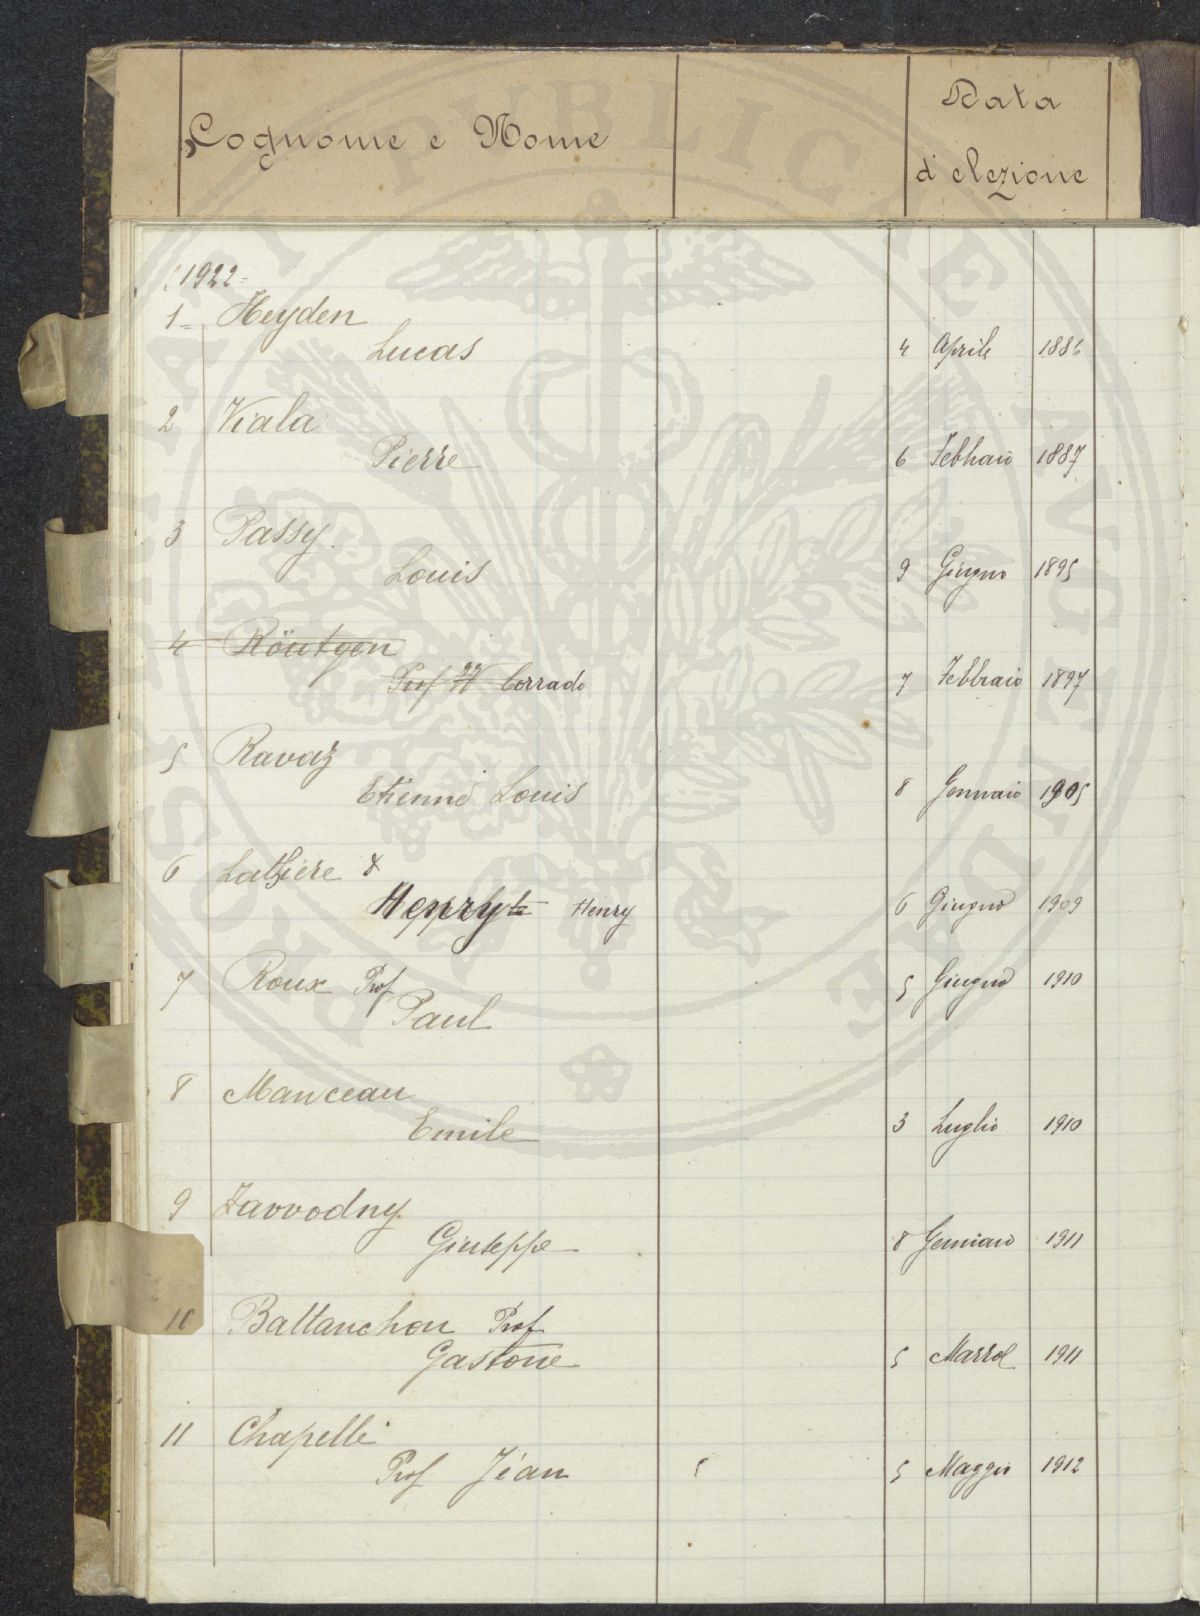 Cognome e Nome
Data
d'elezione
1922=
1= Heyden
Lucas 4 Aprile 1886
2 Viala
Pierre 6 Febbraio 1887
3 Passy
Louis 9 Giugno 1895
4 Röntgen
Prof W Corrado 7 Febbraio 1897
5 Ravaz
Etienne Louis 8 Gennaio 1905
6 Lathiere
Henry Henry 6 Giugno 1909
7 Roux Prof
Paul 5 Giugno 1910
8 Manceau
Emile 3 Luglio 1910
9 Zavvodny
Giuseppe 8 Gennaio 1911
10 Battanchon Prof
Gastone 5 Marzo 1911
11 Chapelle
Prof Jean 5 Maggio 1912